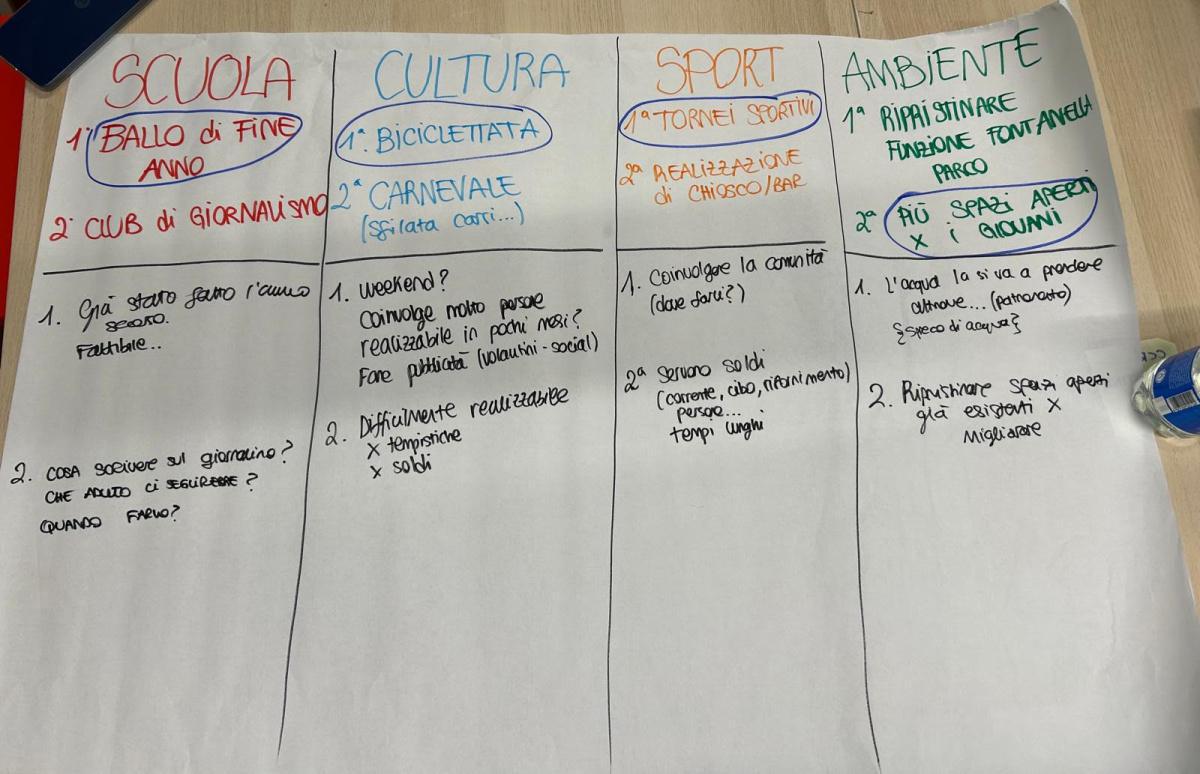 SCUOLA
1ª BALLO di FINE
ANNO
2ª CLUB di GIORNALISMO
1. Già stato fatto l'anno
scorso.
Fattibile...
2. COSA scrivere sul giornalino?
CHE ADULTO ci SEGUIREBBE?
QUANDO FARLO?
CULTURA
1ª. BICICLETTATA
2ª CARNEVALE
(sfilata carri...)
1. Weekend?
Coinvolge molte persone
realizzabile in pochi mesi?
Fare pubblicità (volantini-social)
2. Difficilmente realizzabile
x tempistiche
x soldi
SPORT
1ª TORNEI SPORTIVI
2ª REALIZZAZIONE
di CHIOSCO/BAR
1. Coinvolgere la comunità
(dove farli?)
2ª Servono soldi
(corrente, cibo, rifornimento)
persone...
tempi lunghi
AMBIENTE
1ª RIPRISTINARE
FUNZIONE FONTANELLA
PARCO
2ª PIÙ SPAZI APERTI
X i GIOVANI
1. L'acqua la si va a prendere
altrove... (patronato)
{spreco di acqua}
2. Ripristinare spazi aperti
già esistenti X
migliorare